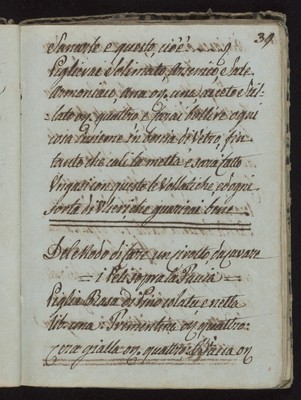 39
sanarle e questo, cioè
Pigliarai Solimato, Arsenico e Sale
Armoniaco, ana on. una, aceto Stil-
lato on. quattro e farai bollire ogni
cosa insieme in
tanto che cali la metta e sarà fatto
Ungi con questo le Vollatiche, ed ogni
sorta di Ulceri che guarirai
Del Modo di fare un cirotto da
i Peli sopra la Facia
Piglia Rasa di Pino colata e netta
lib: una: Trementina on quattro:
cera gialla on. quattro: